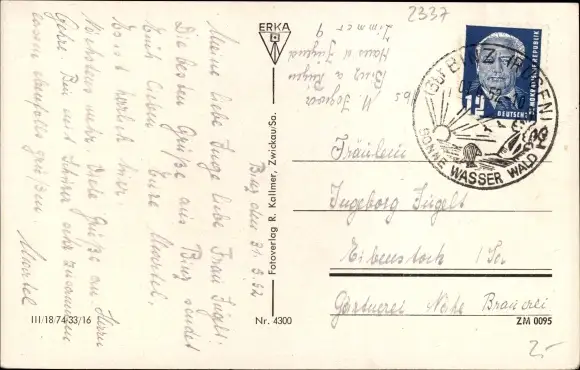 2337
ERKA
Binz den 31.5.52
Meine liebe Inge liebe Frau Jügelt.
Die besten Grüße aus Binz sendet
Euch lieben Eure Muartel.
Es ist herrlich hier.
Nächstens mehr. Viele Grüße an Herrn
Bin mit sehr zusammen
lassen ebenfalls grüßen.
Muartel
III/18/74/33/16
Fotoverlag R. Kallmer, Zwickau/Sa.
Nr. 4300
Binz a. Rügen
Haus d. Jugend
Zimmer 9
BINZ (RÜGEN)
SONNE WASSER WALD
12
DEUTSCHE DEMOKRATISCHE REPUBLIK
Fräulein
Ingeborg Jügelt
Eibenstock i/Sa
Gärtnerei Nähe Brauerei
ZM 0095
2,-